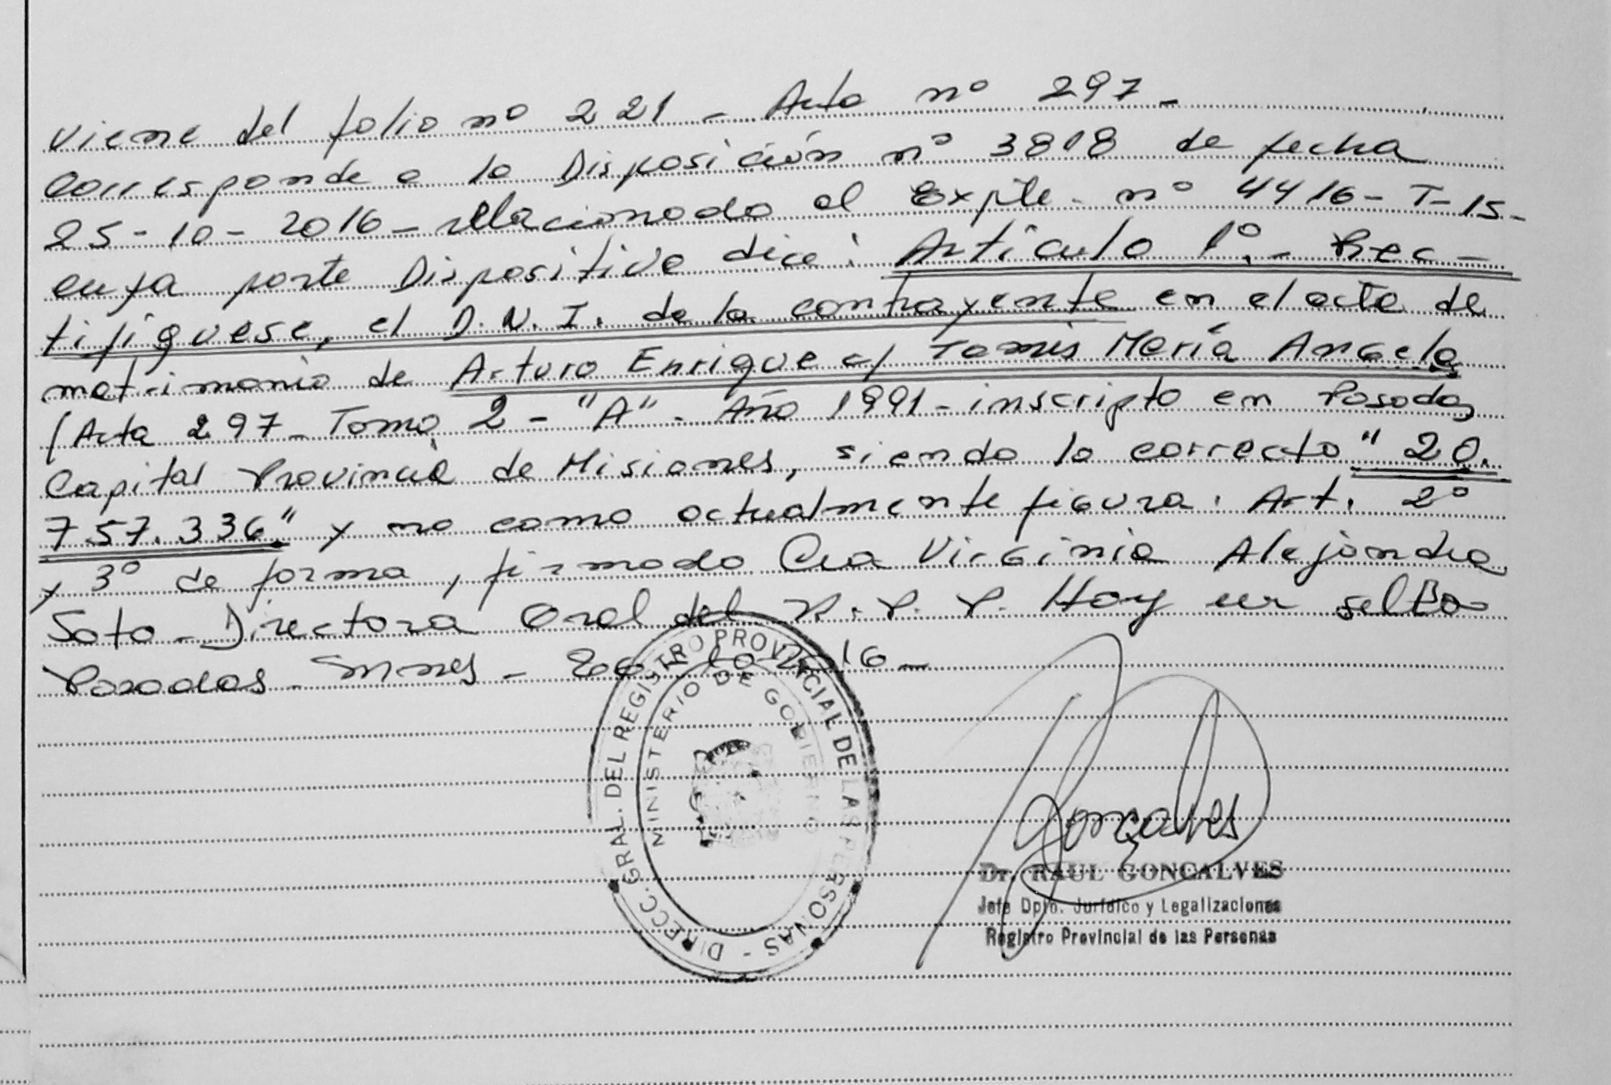 Viene del folio nº 221 - Acta nº 297 -
Corresponde a la Disposición nº 3818 de fecha
25-10-2016 - relacionado al Expte. nº 4416-T-15-
cuya parte Dispositiva dice: Artículo 1º.- Rec-
tifíquese, el D.N.I. de la contrayente en el acta de
matrimonio de Arturo Enrique c/ Tamis María Angela
(Acta 297 - Tomo 2 - "A" - Año 1991 - inscripto en Posadas
Capital Provincia de Misiones, siendo lo correcto "20.
757.336" y no como actualmente figura. Art. 2º
y 3º de forma, firmado Cra Virginia Alejandra
Soto - Directora Gral del R.P.P. Hoy
Posadas - Mnes - 2016 -
DIRECC. GRAL. DEL REGISTRO PROVINCIAL DE LAS PERSONAS -
MINISTERIO DE GOBIERNO
Gonçalves
Dr. RAUL GONCALVES
Jefe Dpto. Jurídico y Legalizaciones
Registro Provincial de las Personas